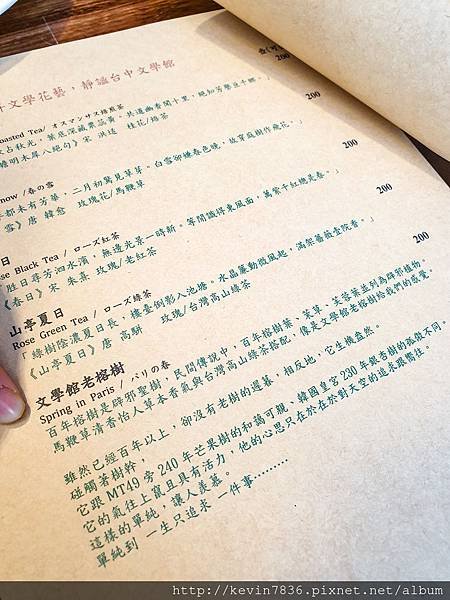 文學花藝，靜謐台中文學館
oasted Tea/ オスマンサス焙煎茶
200
占秋光。葉底深藏粟蕊黃。共道幽香聞十里，絕知芳譽亘千鄉。」
明木犀八絕句》宋 洪适 桂花/焙茶
now /春の雪
200
都未有芳華，二月初驚見草芽。白雪卻嫌春色晚，故穿庭樹作飛花。」
雪》唐 韓愈 玫瑰花/馬鞭草
日
se Black Tea / ローズ紅茶
200
勝日尋芳泗水濱，無邊光景一時新。等閒識得東風面，萬紫千紅總是春。」
《春日》宋 朱熹 玫瑰/老紅茶
山亭夏日
Rose Green Tea / ローズ綠茶
200
「綠樹陰濃夏日長，樓臺倒影入池塘。水晶簾動微風起，滿架薔薇壹院香。」
《山亭夏日》唐 高駢 玫瑰/台灣高山綠茶
文學館老榕樹
Spring in Paris / パリの春
百年榕樹是辟邪聖樹，民間傳說中，百年榕樹葉、茉草、芙蓉葉並列為辟邪植物。
馬鞭草清香怡人草本香氣與台灣高山綠茶搭配，像是文學館老榕樹給我們的感覺。
雖然已經百年以上，卻沒有老樹的遲暮，相反地，它生機盎然。
碰觸著樹幹，
它跟MT49 旁 240 年芒果樹的和藹可親、韓國皇宮 230 年銀杏樹的孤傲不同。
它的氣往上竄且具有活力，他的心思只在於在於對天空的追求跟嚮往。
這樣的單純，讓人羨慕。
單純到 一生只追求 一件事.........
http://kevin7836.pixnet.net/album